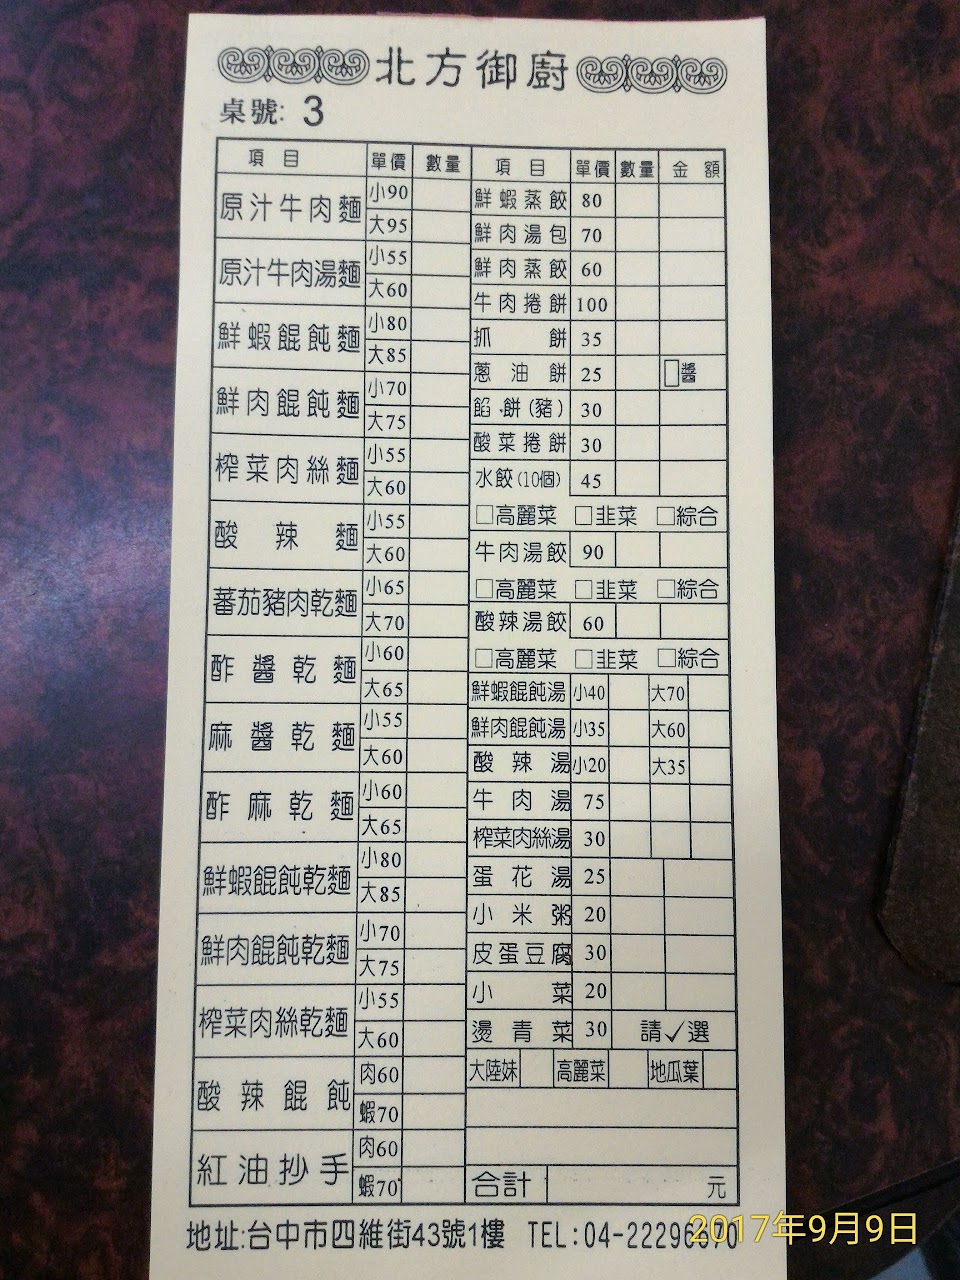 北方御廚
桌號: 3
項目 單價 數量 項目 單價 數量 金額
原汁牛肉麵 小90 大95
原汁牛肉湯麵 小55 大60
鮮蝦餛飩麵 小80 大85
鮮肉餛飩麵 小70 大75
榨菜肉絲麵 小55 大60
酸辣麵 小55 大60
蕃茄豬肉乾麵 小65 大70
酢醬乾麵 小60 大65
麻醬乾麵 小55 大60
酢麻乾麵 小60 大65
鮮蝦餛飩乾麵 小80 大85
鮮肉餛飩乾麵 小70 大75
榨菜肉絲乾麵 小55 大60
酸辣餛飩 肉60 蝦70
紅油抄手 肉60 蝦70
鮮蝦蒸餃 80
鮮肉湯包 70
鮮肉蒸餃 60
牛肉捲餅 100
抓餅 35
蔥油餅 25 □醬
餡餅(豬) 30
酸菜捲餅 30
水餃(10個) 45
□高麗菜 □韭菜 □綜合
牛肉湯餃 90
□高麗菜 □韭菜 □綜合
酸辣湯餃 60
□高麗菜 □韭菜 □綜合
鮮蝦餛飩湯 小40 大70
鮮肉餛飩湯 小35 大60
酸辣湯 小20 大35
牛肉湯 75
榨菜肉絲湯 30
蛋花湯 25
小米粥 20
皮蛋豆腐 30
小菜 20
燙青菜 30 請✓選
大陸妹 高麗菜 地瓜葉
合計 元
地址:台中市四維街43號1樓 TEL:04-22296670
2017年9月9日